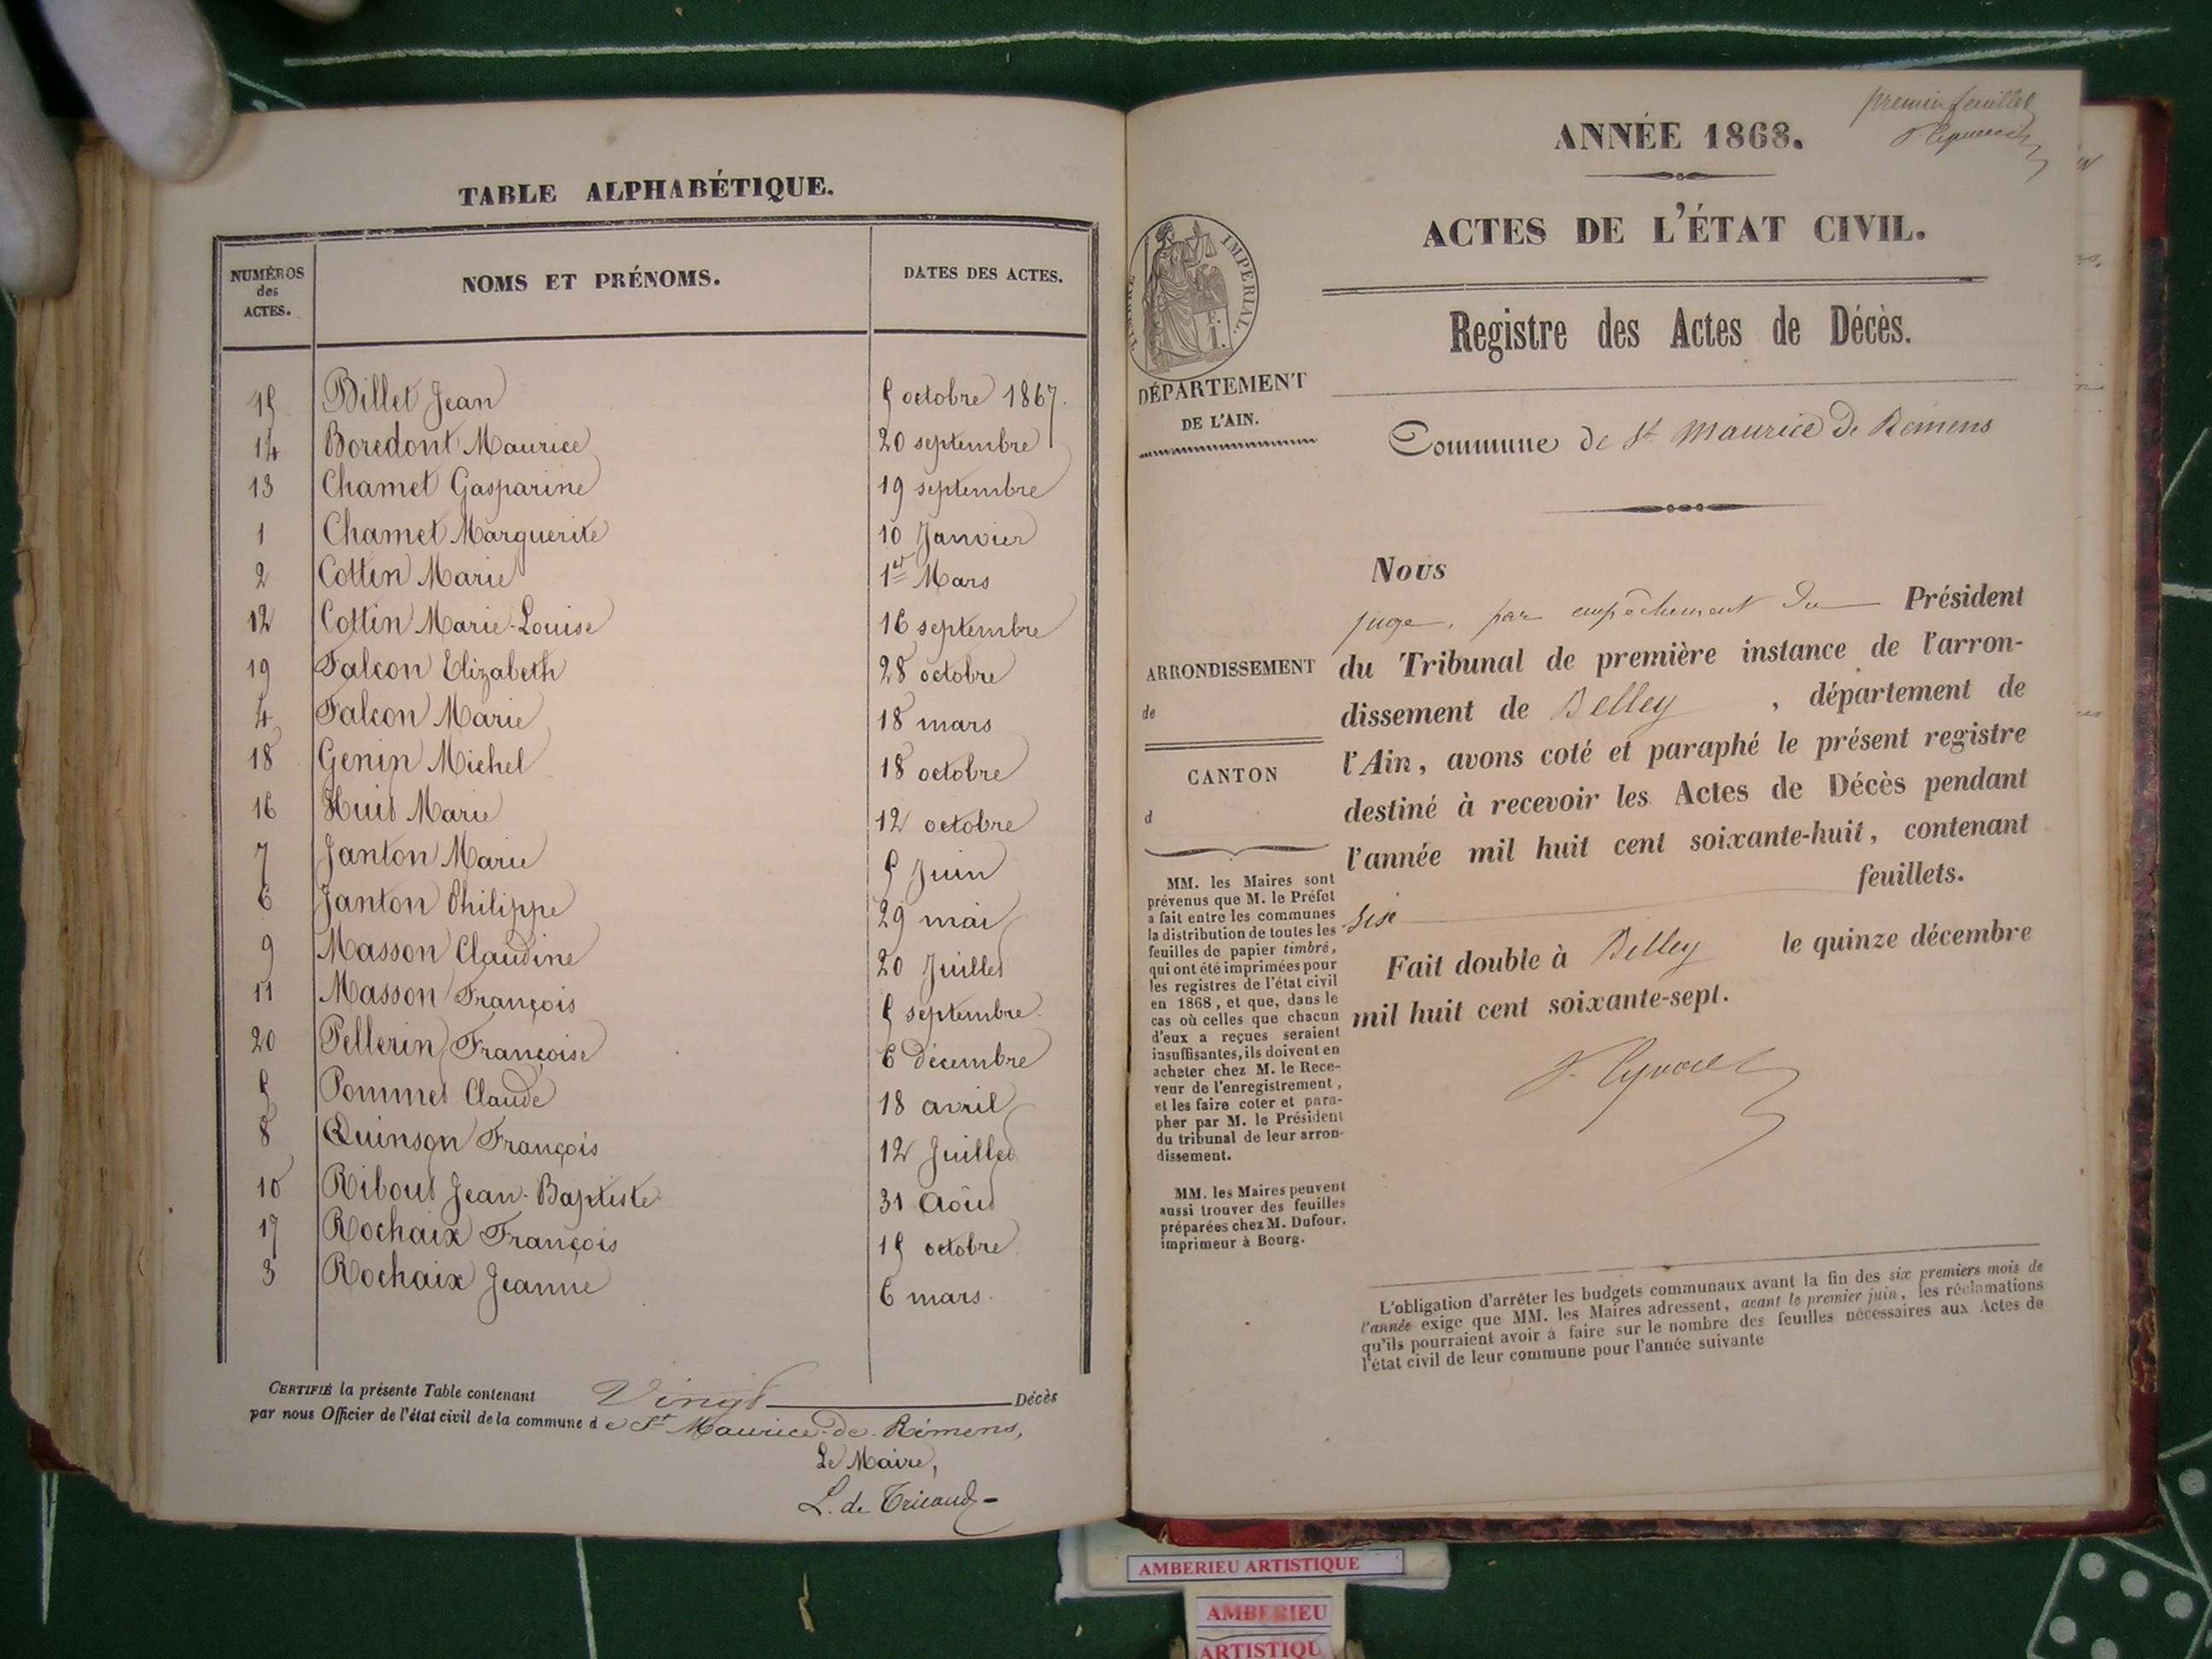 TABLE ALPHABÉTIQUE.
NUMÉROS des ACTES. NOMS ET PRÉNOMS. DATES DES ACTES.
15 Billet Jean 5 octobre 1867.
14 Boredont Maurice 20 septembre
13 Chamet Gasparine 19 septembre
1 Chamet Marguerite 10 Janvier
2 Cottin Marie 1er Mars
12 Cottin Marie-Louise 16 septembre
19 Falcon Elizabeth 28 octobre
4 Falcon Marie 18 mars
18 Genin Michel 18 octobre
16 Huit Marie 12 octobre
7 Janton Marie 5 Juin
6 Janton Philippe 29 mai
9 Masson Claudine 20 Juillet
11 Masson François 5 septembre
20 Pellerin Françoise 6 décembre
5 Pommet Claude 18 avril
8 Quinson François 12 Juillet
10 Ribout Jean-Baptiste 31 Août
17 Rochaix François 15 octobre
3 Rochaix Jeanne 6 mars.
CERTIFIÉ la présente Table contenant Vingt Décès
par nous Officier de l'état civil de la commune de St Maurice-de-Rémens,
Le Maire,
L. de Tricaud
premier feuillet
ANNÉE 1868.
ACTES DE L'ÉTAT CIVIL.
TIMBRE IMPERIAL.
Registre des Actes de Décès.
DÉPARTEMENT
DE L'AIN.
Commune de St Maurice de Rémens
Nous
juge, par empêchement du Président
du Tribunal de première instance de l'arron-
dissement de Belley, département de
l'Ain, avons coté et paraphé le présent registre
destiné à recevoir les Actes de Décès pendant
l'année mil huit cent soixante-huit, contenant
six feuillets.
Fait double à Belley le quinze décembre
mil huit cent soixante-sept.
ARRONDISSEMENT
de
CANTON
d
MM. les Maires sont
prévenus que M. le Préfet
a fait entre les communes
la distribution de toutes les
feuilles de papier timbré,
qui ont été imprimées pour
les registres de l'état civil
en 1868, et que, dans le
cas où celles que chacun
d'eux a reçues seraient
insuffisantes, ils doivent en
acheter chez M. le Rece-
veur de l'enregistrement,
et les faire coter et para-
pher par M. le Président
du tribunal de leur arron-
dissement.
MM. les Maires peuvent
aussi trouver des feuilles
préparées chez M. Dufour,
imprimeur à Bourg.
L'obligation d'arrêter les budgets communaux avant la fin des six premiers mois de
l'année exige que MM. les Maires adressent, avant le premier juin, les réclamations
qu'ils pourraient avoir à faire sur le nombre des feuilles nécessaires aux Actes de
l'état civil de leur commune pour l'année suivante
AMBERIEU ARTISTIQUE
AMBERIEU
ARTISTIQU